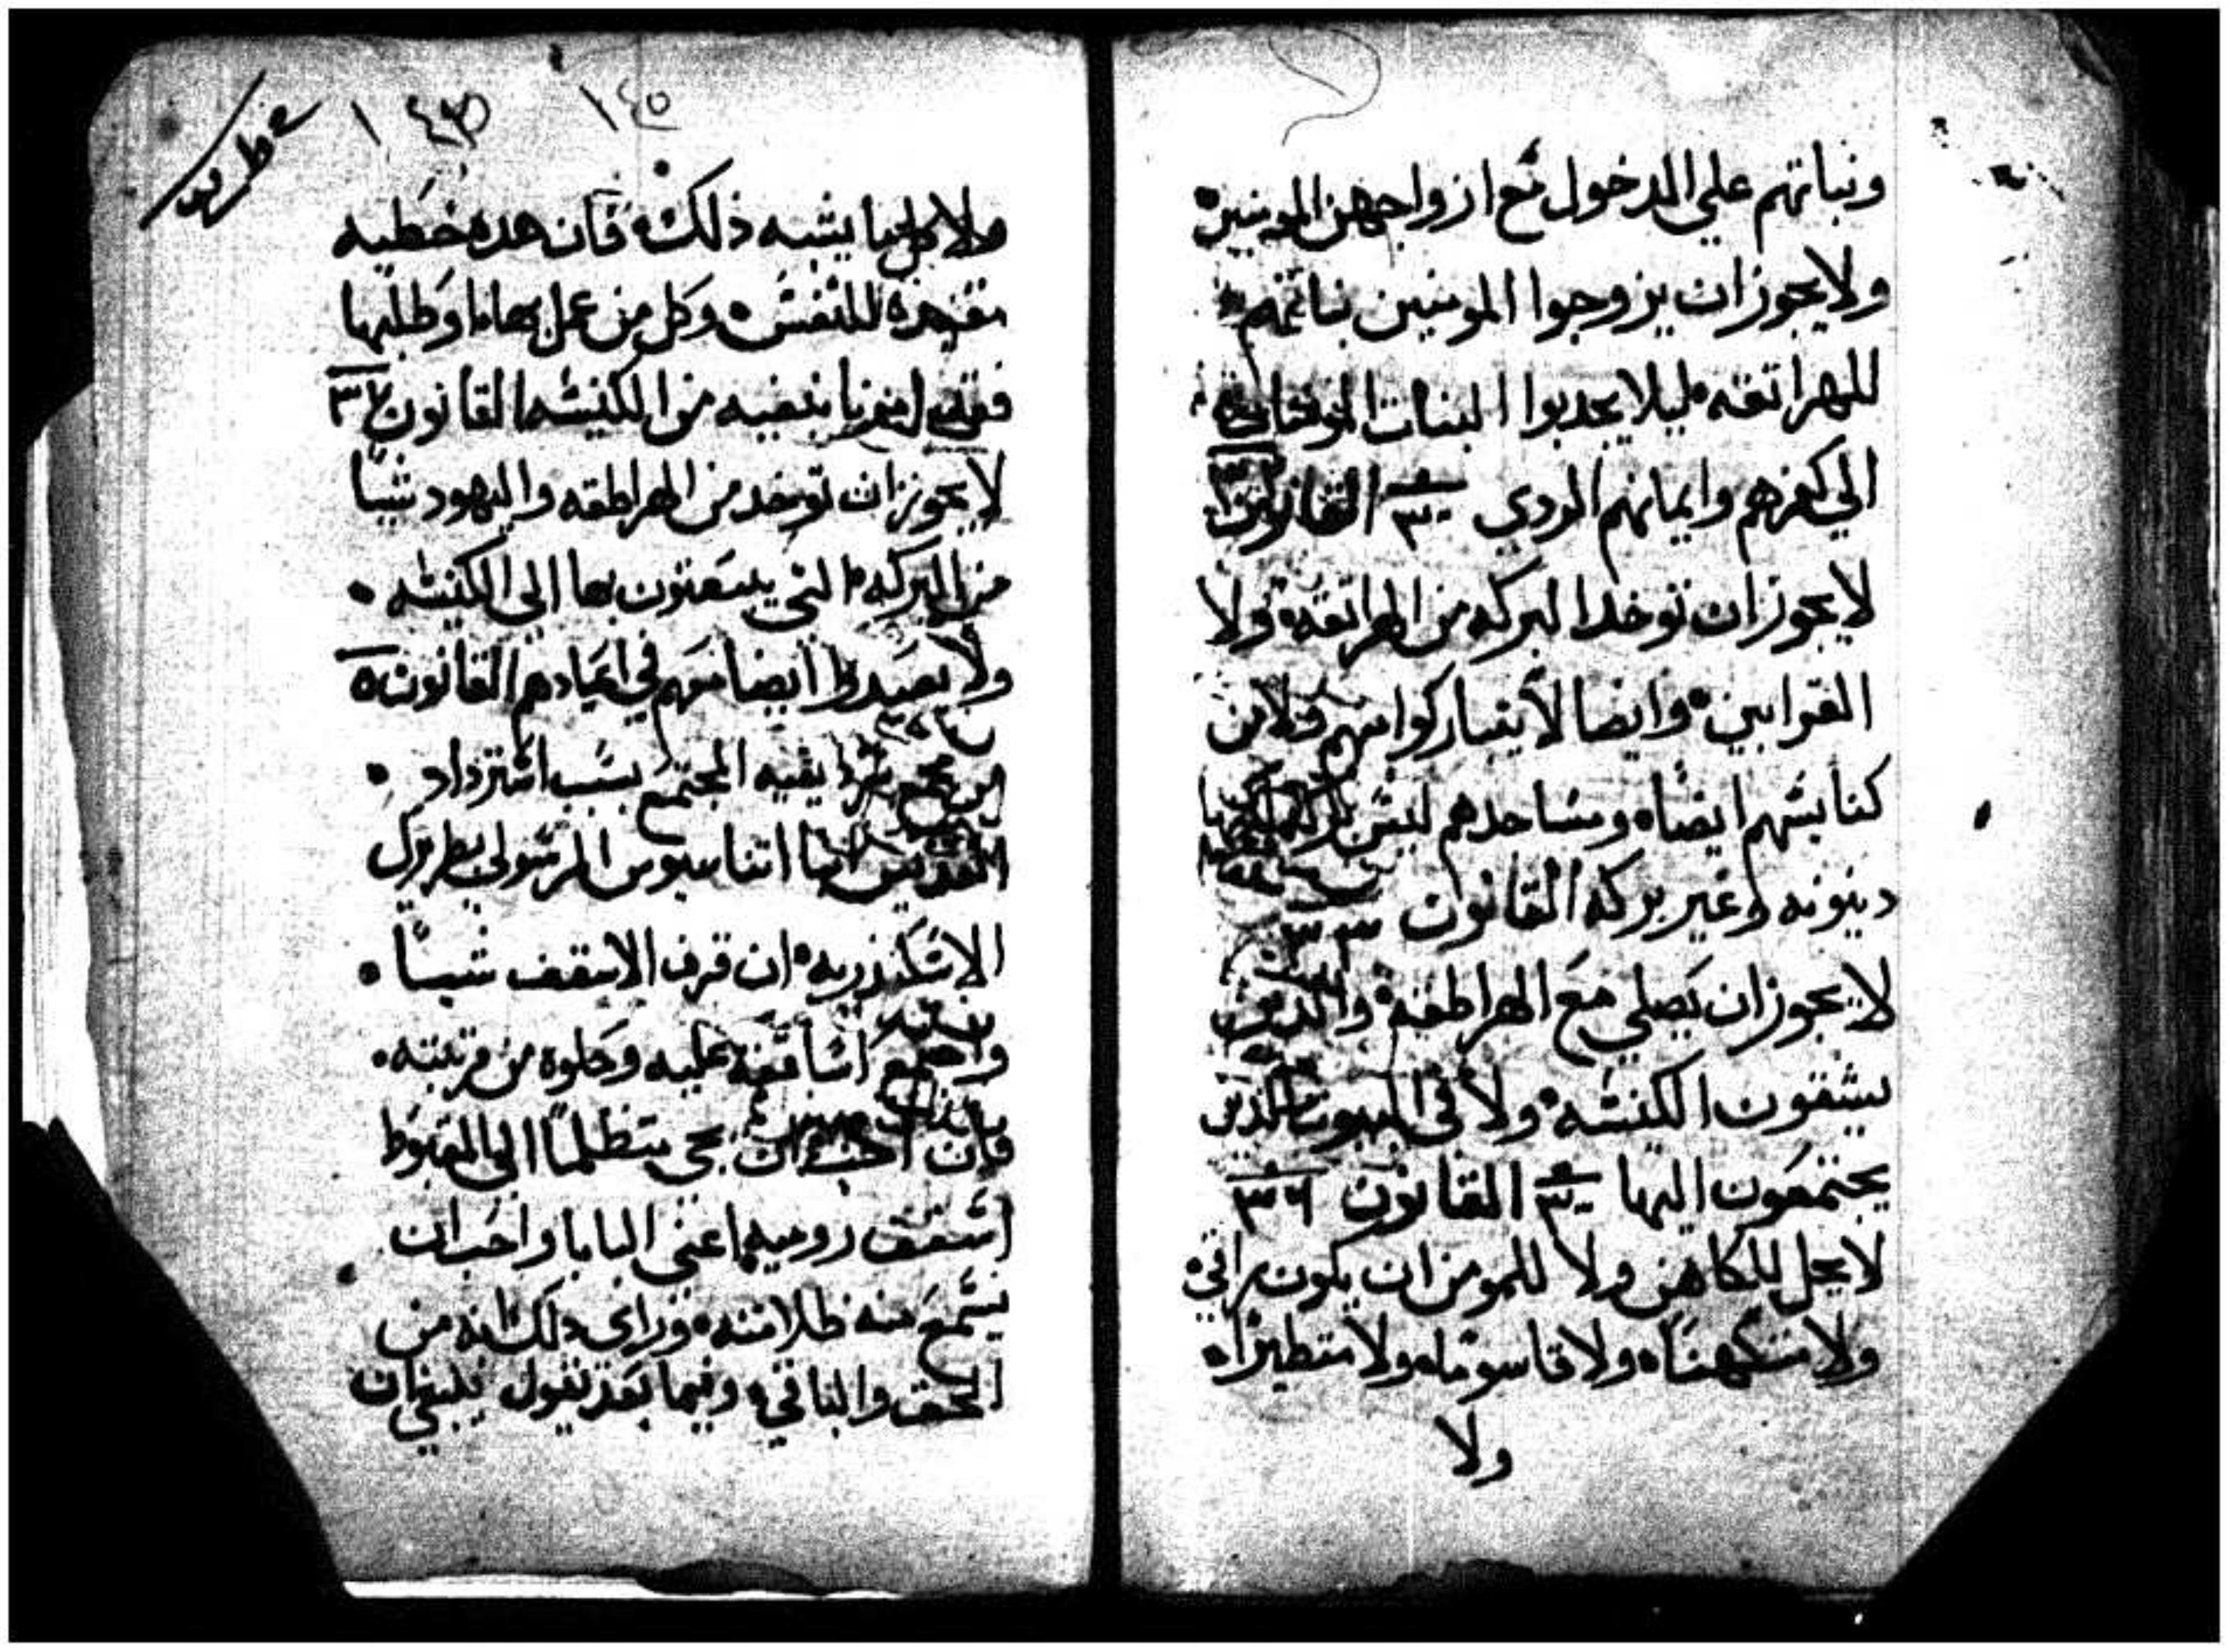 وبناتهم علي الدخول مع ازواجهن المومنين
ولا يجوز ان يزوجوا المومنين بناتهم
للهراتقه ليلا يجدبوا البنات
الي كفرهم وايمانهم الردي القانون
لا يجوز ان توخدا البركه من الهراتقه ولا
القرابين وايضا لا يتباركوا منهم ولا من
كنايسهم ايضا ومساجدهم ليس
دينونه وغير بركه القانون ٣٣
لا يجوز ان يصلي مع الهراطقه والذين
يشقون الكنسه ولا في البيوت الذين
يجتمعون اليها القانون ٣٦
لا يحل للكاهن ولا للمومن ان يكون راقي
ولا متكهنا ولا قاسوما ولا متطيرا
ولا
١٤٥
ولا ما يشبه ذلك فان هده خطيه
للنفس وكل من عمل بها او طلبها
فقد امرنا بنفيه من الكنيسه القانون ٣٧
لا يجوز ان توخد من الهراطقه واليهود شيا
من البركه التي يبعتون بها الي الكنسه
ولا يعيدوا ايضا معهم في اعيادهم القانون ٥
من مجمع سرديقيه المجتمع بسبب استرداد
القديس انبا اتناسيوس الرسولي بطريرك
الاسكندريه ان قرف الاسقف شيا
واجتمع اساقفة عليه وحلوه من مرتبته
فان احب ان يجي متظلما الي المغبوط
اسقف روميه اعني البابا واحب ان
يسمع منه ظلامته وراي دلك انه من
الحق والباقي وفيما بعد نقول ينبغي ان